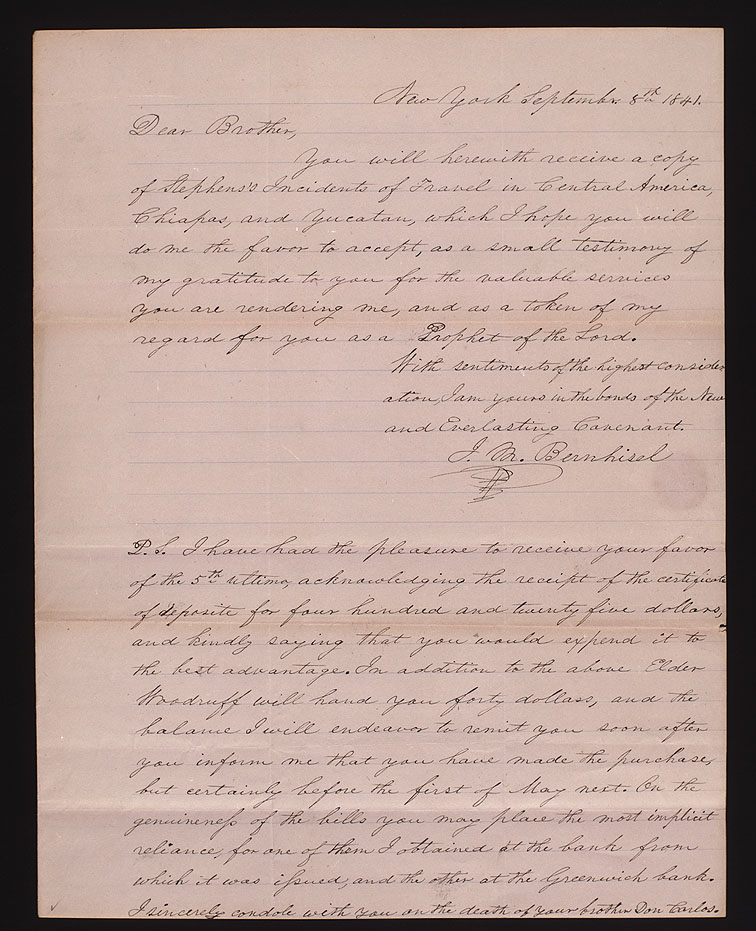 New York September 8th 1841.
Dear Brother,
You will herewith receive a copy
of Stephens's Incidents of Travel in Central America,
Chiapas, and Yucatan, which I hope you will
do me the favor to accept, as a small testimony of
my gratitude to you for the valuable services
you are rendering me, and as a token of my
regard for you as a Prophet of the Lord.
With sentiments of the highest consider
ation, I am yours in the bonds of the New
and Everlasting Covenant.
J. M. Bernhisel
P. S. I have had the pleasure to receive your favor
of the 5th ultimo, acknowledging the receipt of the certificate
of deposite for four hundred and twenty five dollars,
and kindly saying that you would expend it to
the best advantage. In addition to the above Elder
Woodruff will hand you forty dollars, and the
balance I will endeavor to remit you soon after
you inform me that you have made the purchase,
but certainly before the first of May next. On the
genuineness of the bills you may place the most implicit
reliance, for one of them I obtained at the bank from
which it was issued, and the other at the Greenwich bank.
I sincerely condole with you on the death of your brother Don Carlos.